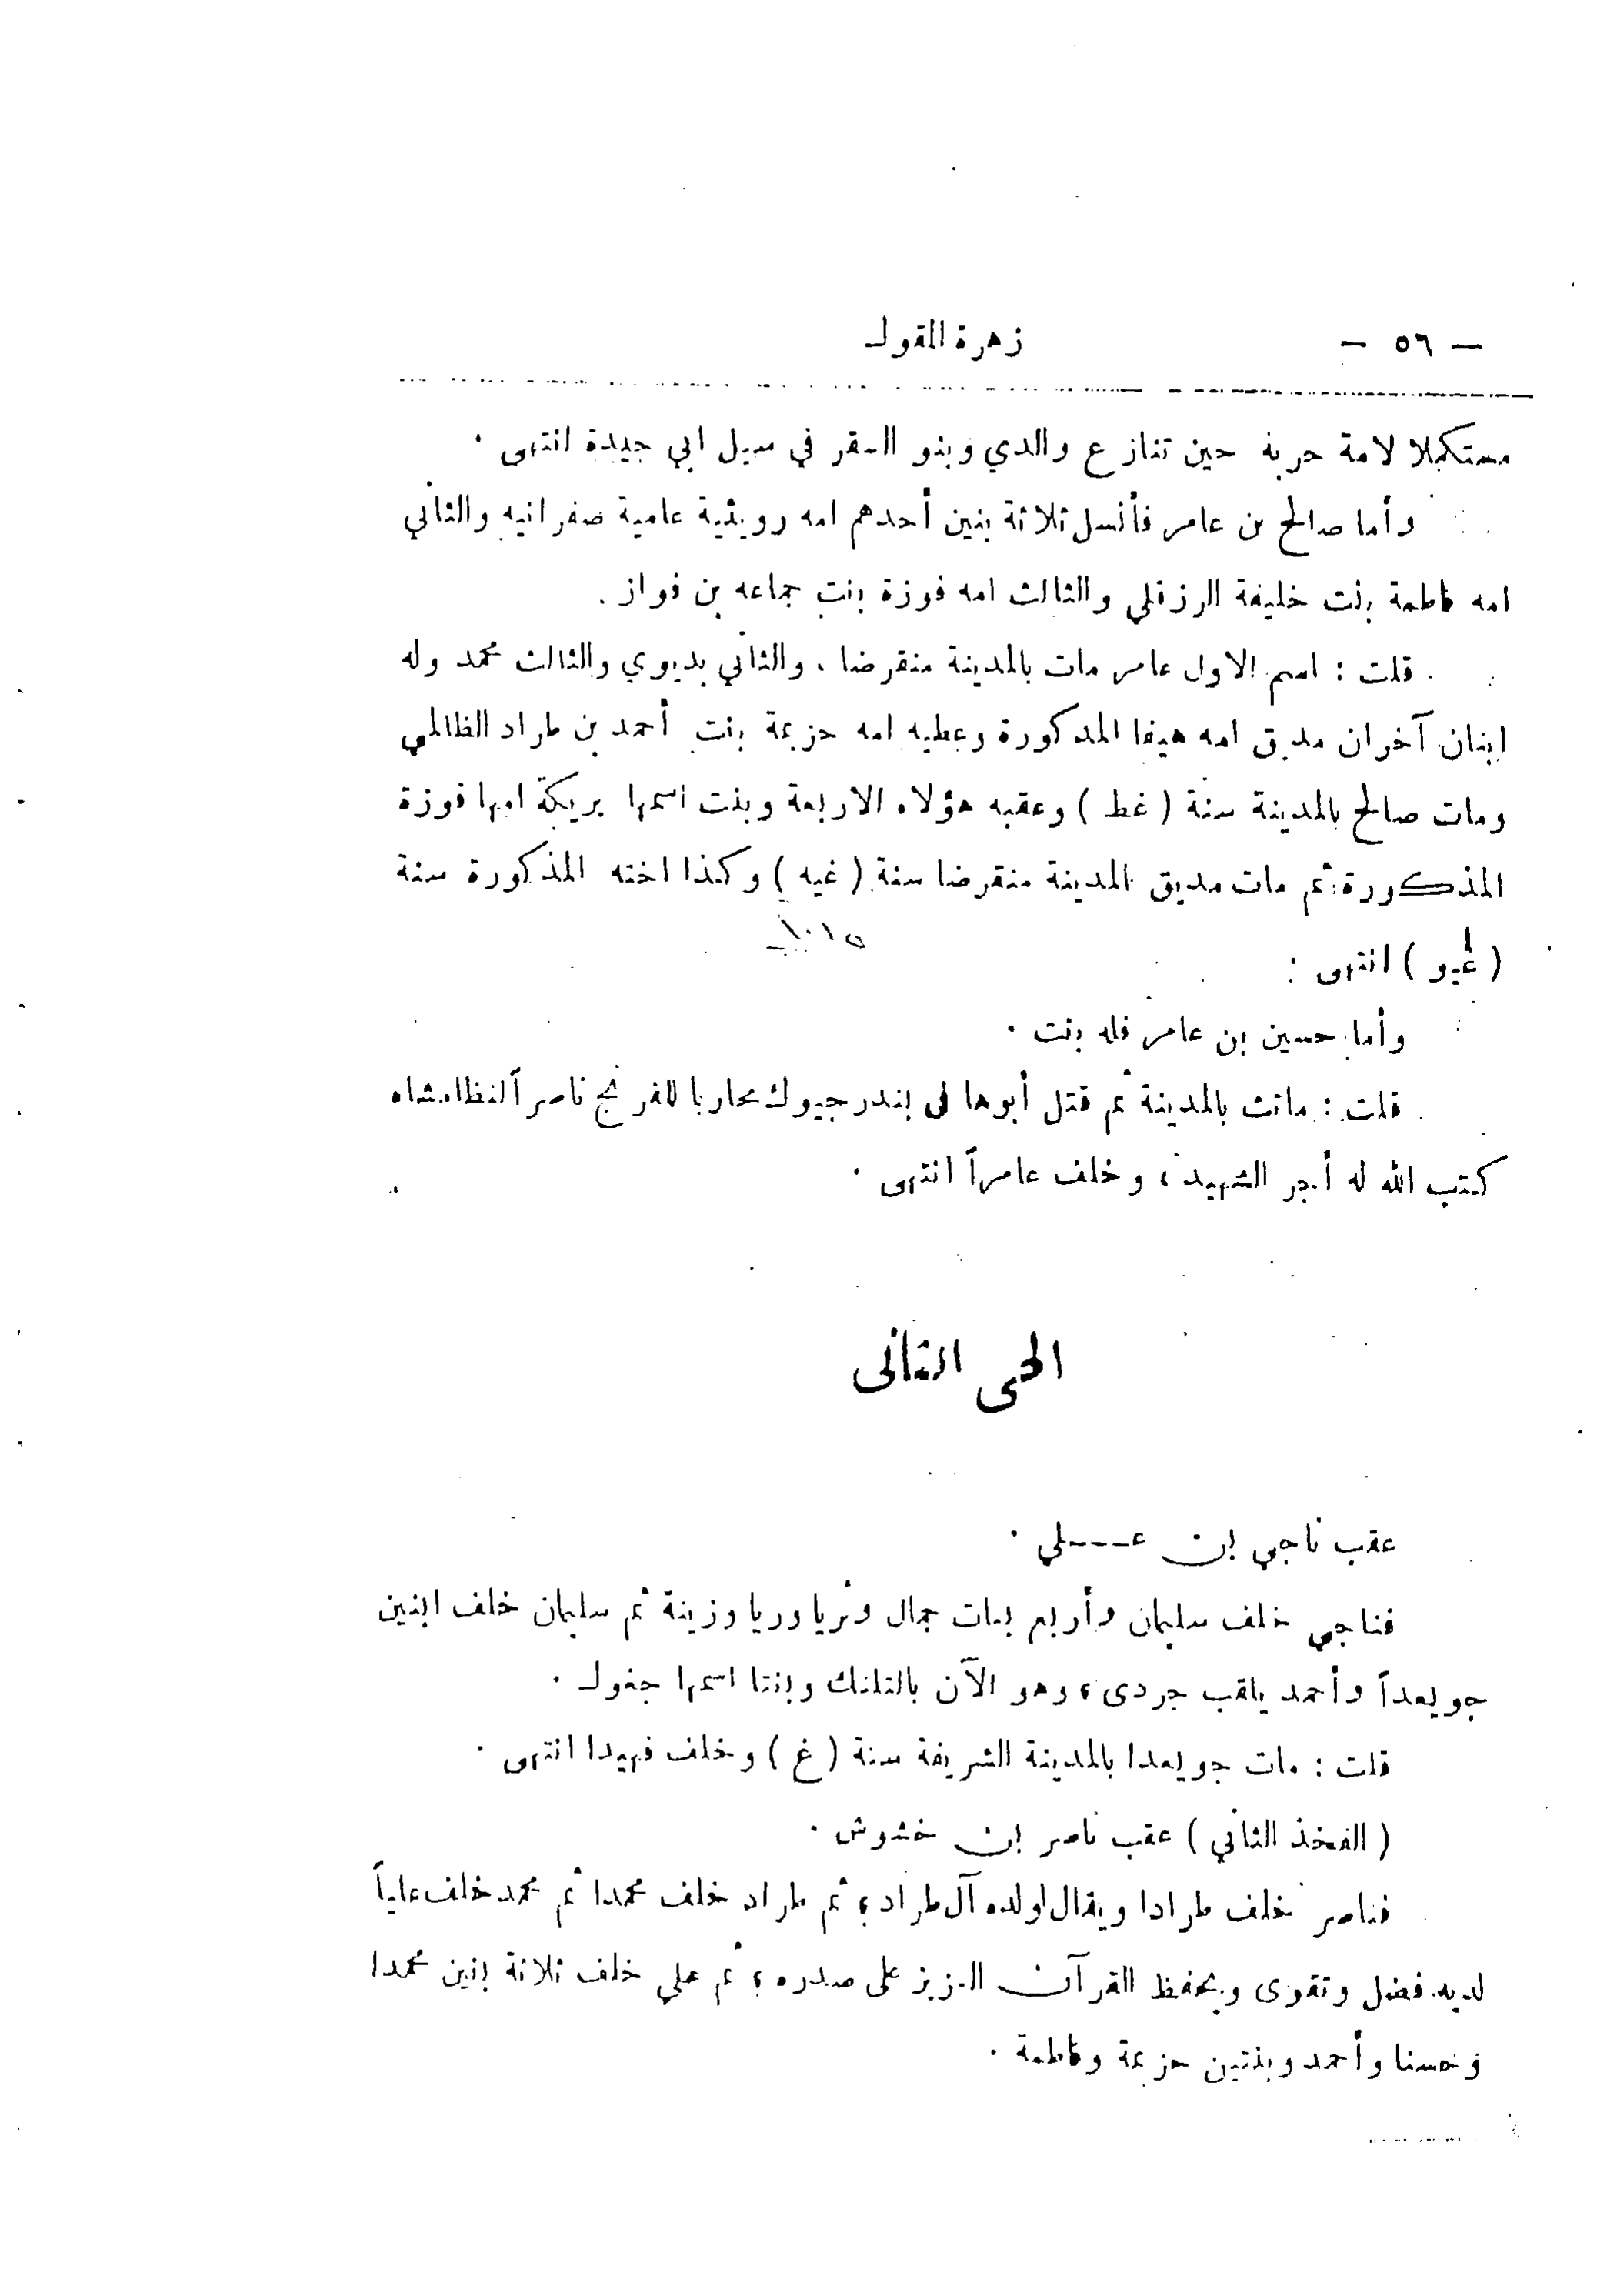 — ٥٦ — زهرة المقول
مستكملا لامة حربه حين تنازع والدي وبنو السفر في سيل ابي جيدة انتهى .
وأما صالح بن عامر فأنسل ثلاثة بنين أحدهم امه رويثية عامية صفرانيه والثاني
امه فاطمة بنت خليفة الرزقلي والثالث امه فوزة بنت جماعه بن فواز .
قلت : اسم الاول عامر مات بالمدينة منقرضا ، والثاني بديوي والثالث محمد وله
ابنان آخران مديق امه هيفا المذكورة وعطيه امه حزيمة بنت أحمد بن طراد الظالمي
ومات صالح بالمدينة سنة ( غط ) وعقبه هؤلاء الاربعة وبنت اسمها بريكة امها فوزة
المذكورة ثم مات مديق المدينة منقرضا سنة ( غيه ) وكذا اخته المذكورة سنة
١٠١٥
( غيو ) انتهى :
وأما حسين بن عامر فله بنت .
قلت : ماتت بالمدينة ثم قتل أبوها فى بندر جيوك محاربا للفرنج ناصراً لنظامشاه
كتب الله له أجر الشهيد ، وخلف عامراً انتهى .
الحى الثانى
عقب ناجي بن عـــلي .
فناجي خلف سليمان وأربع بنات جمال وثريا وريا وزينة ثم سليمان خلف ابنين
جويعداً وأحمد يلقب جردى ، وهو الآن بالتلنك وبنتا اسمها جغول .
قلت : مات جويعدا بالمدينة الشريفة سنة ( غ ) وخلف فهيدا انتهى .
( الفخذ الثاني ) عقب ناصر بن خشوش .
فناصر خلف طرادا ويقال لولده آل طراد ؛ ثم طراد خلف محمدا ثم محمد خلف علياً
لديه فضل وتقوى ويحفظ القرآن العزيز على صدره ؛ ثم علي خلف ثلاثة بنين محمدا
وحسنا وأحمد وبنتين حزيمة وفاطمة .